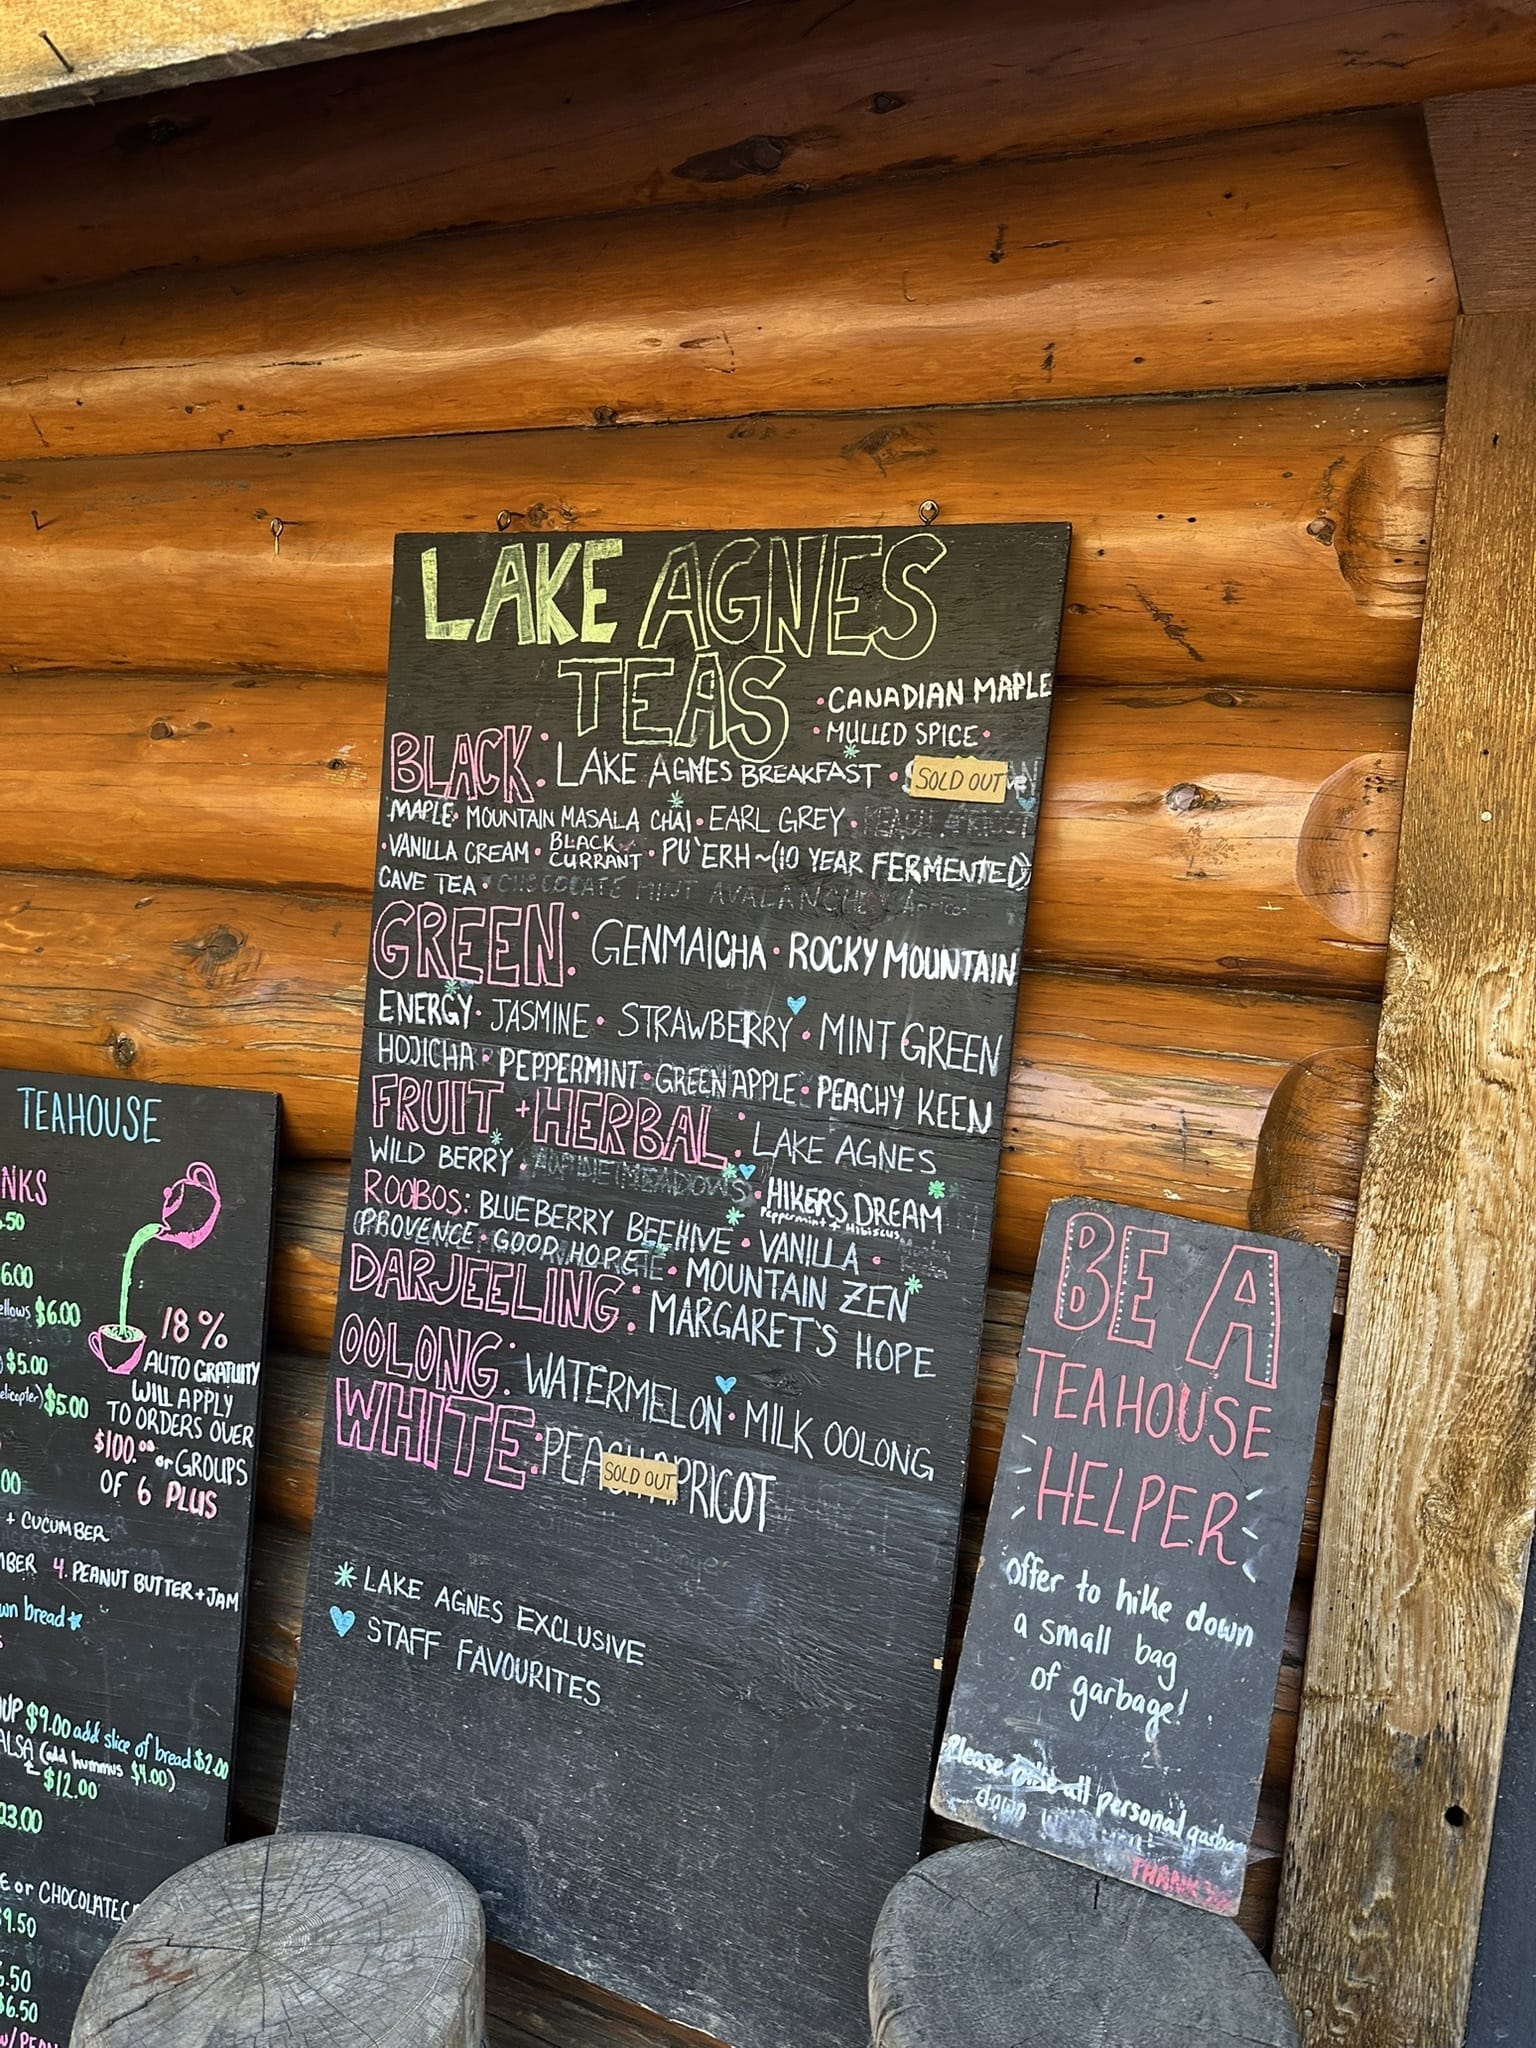 LAKE AGNES
TEAS
• CANADIAN MAPLE
• MULLED SPICE •
BLACK: LAKE AGNES BREAKFAST • SOLD OUT
MAPLE • MOUNTAIN MASALA CHAI • EARL GREY •
• VANILLA CREAM • BLACK CURRANT • PU'ERH ~ (10 YEAR FERMENTED)
CAVE TEA • CHOCOLATE MINT AVALANCHE
GREEN: GENMAICHA • ROCKY MOUNTAIN
ENERGY • JASMINE • STRAWBERRY • MINT GREEN
HOJICHA • PEPPERMINT • GREEN APPLE • PEACHY KEEN
FRUIT + HERBAL: LAKE AGNES
WILD BERRY • ALPINE MEADOWS • HIKERS DREAM
Peppermint + Hibiscus
ROOIBOS: BLUEBERRY BEEHIVE • VANILLA •
PROVENCE • GOOD HOPE • MOUNTAIN ZEN
DARJEELING: MARGARET'S HOPE
OOLONG: WATERMELON • MILK OOLONG
WHITE: PEACH APRICOT
SOLD OUT
* LAKE AGNES EXCLUSIVE
♥ STAFF FAVOURITES
TEAHOUSE
NKS
.50
6.00
ellows $6.00
$5.00
elicopter) $5.00
.00
18%
AUTO GRATUITY
WILL APPLY
TO ORDERS OVER
$100.00 or GROUPS
OF 6 PLUS
+ CUCUMBER
MBER 4. PEANUT BUTTER + JAM
wn bread
UP $9.00 add slice of bread $2.00
ALSA (add hummus $4.00)
$12.00
23.00
E or CHOCOLATE C
9.50
.50
$6.50
BE A
TEAHOUSE
HELPER
offer to hike down
a small bag
of garbage!
Please all personal
down
THANK